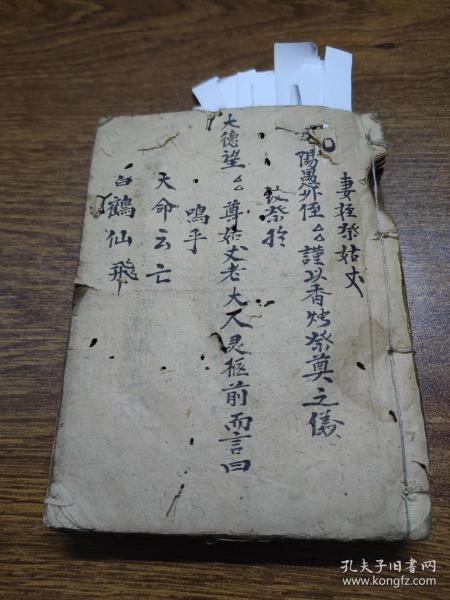 妻姪祭姑丈
陽愚外侄厶厶謹以香灼祭奠之儀
致祭於
大德望厶厶尊姑丈老大人灵柩前而言曰
嗚乎
天命云亡
白鶴仙飛
孔夫子旧书网
www.kongfz.com